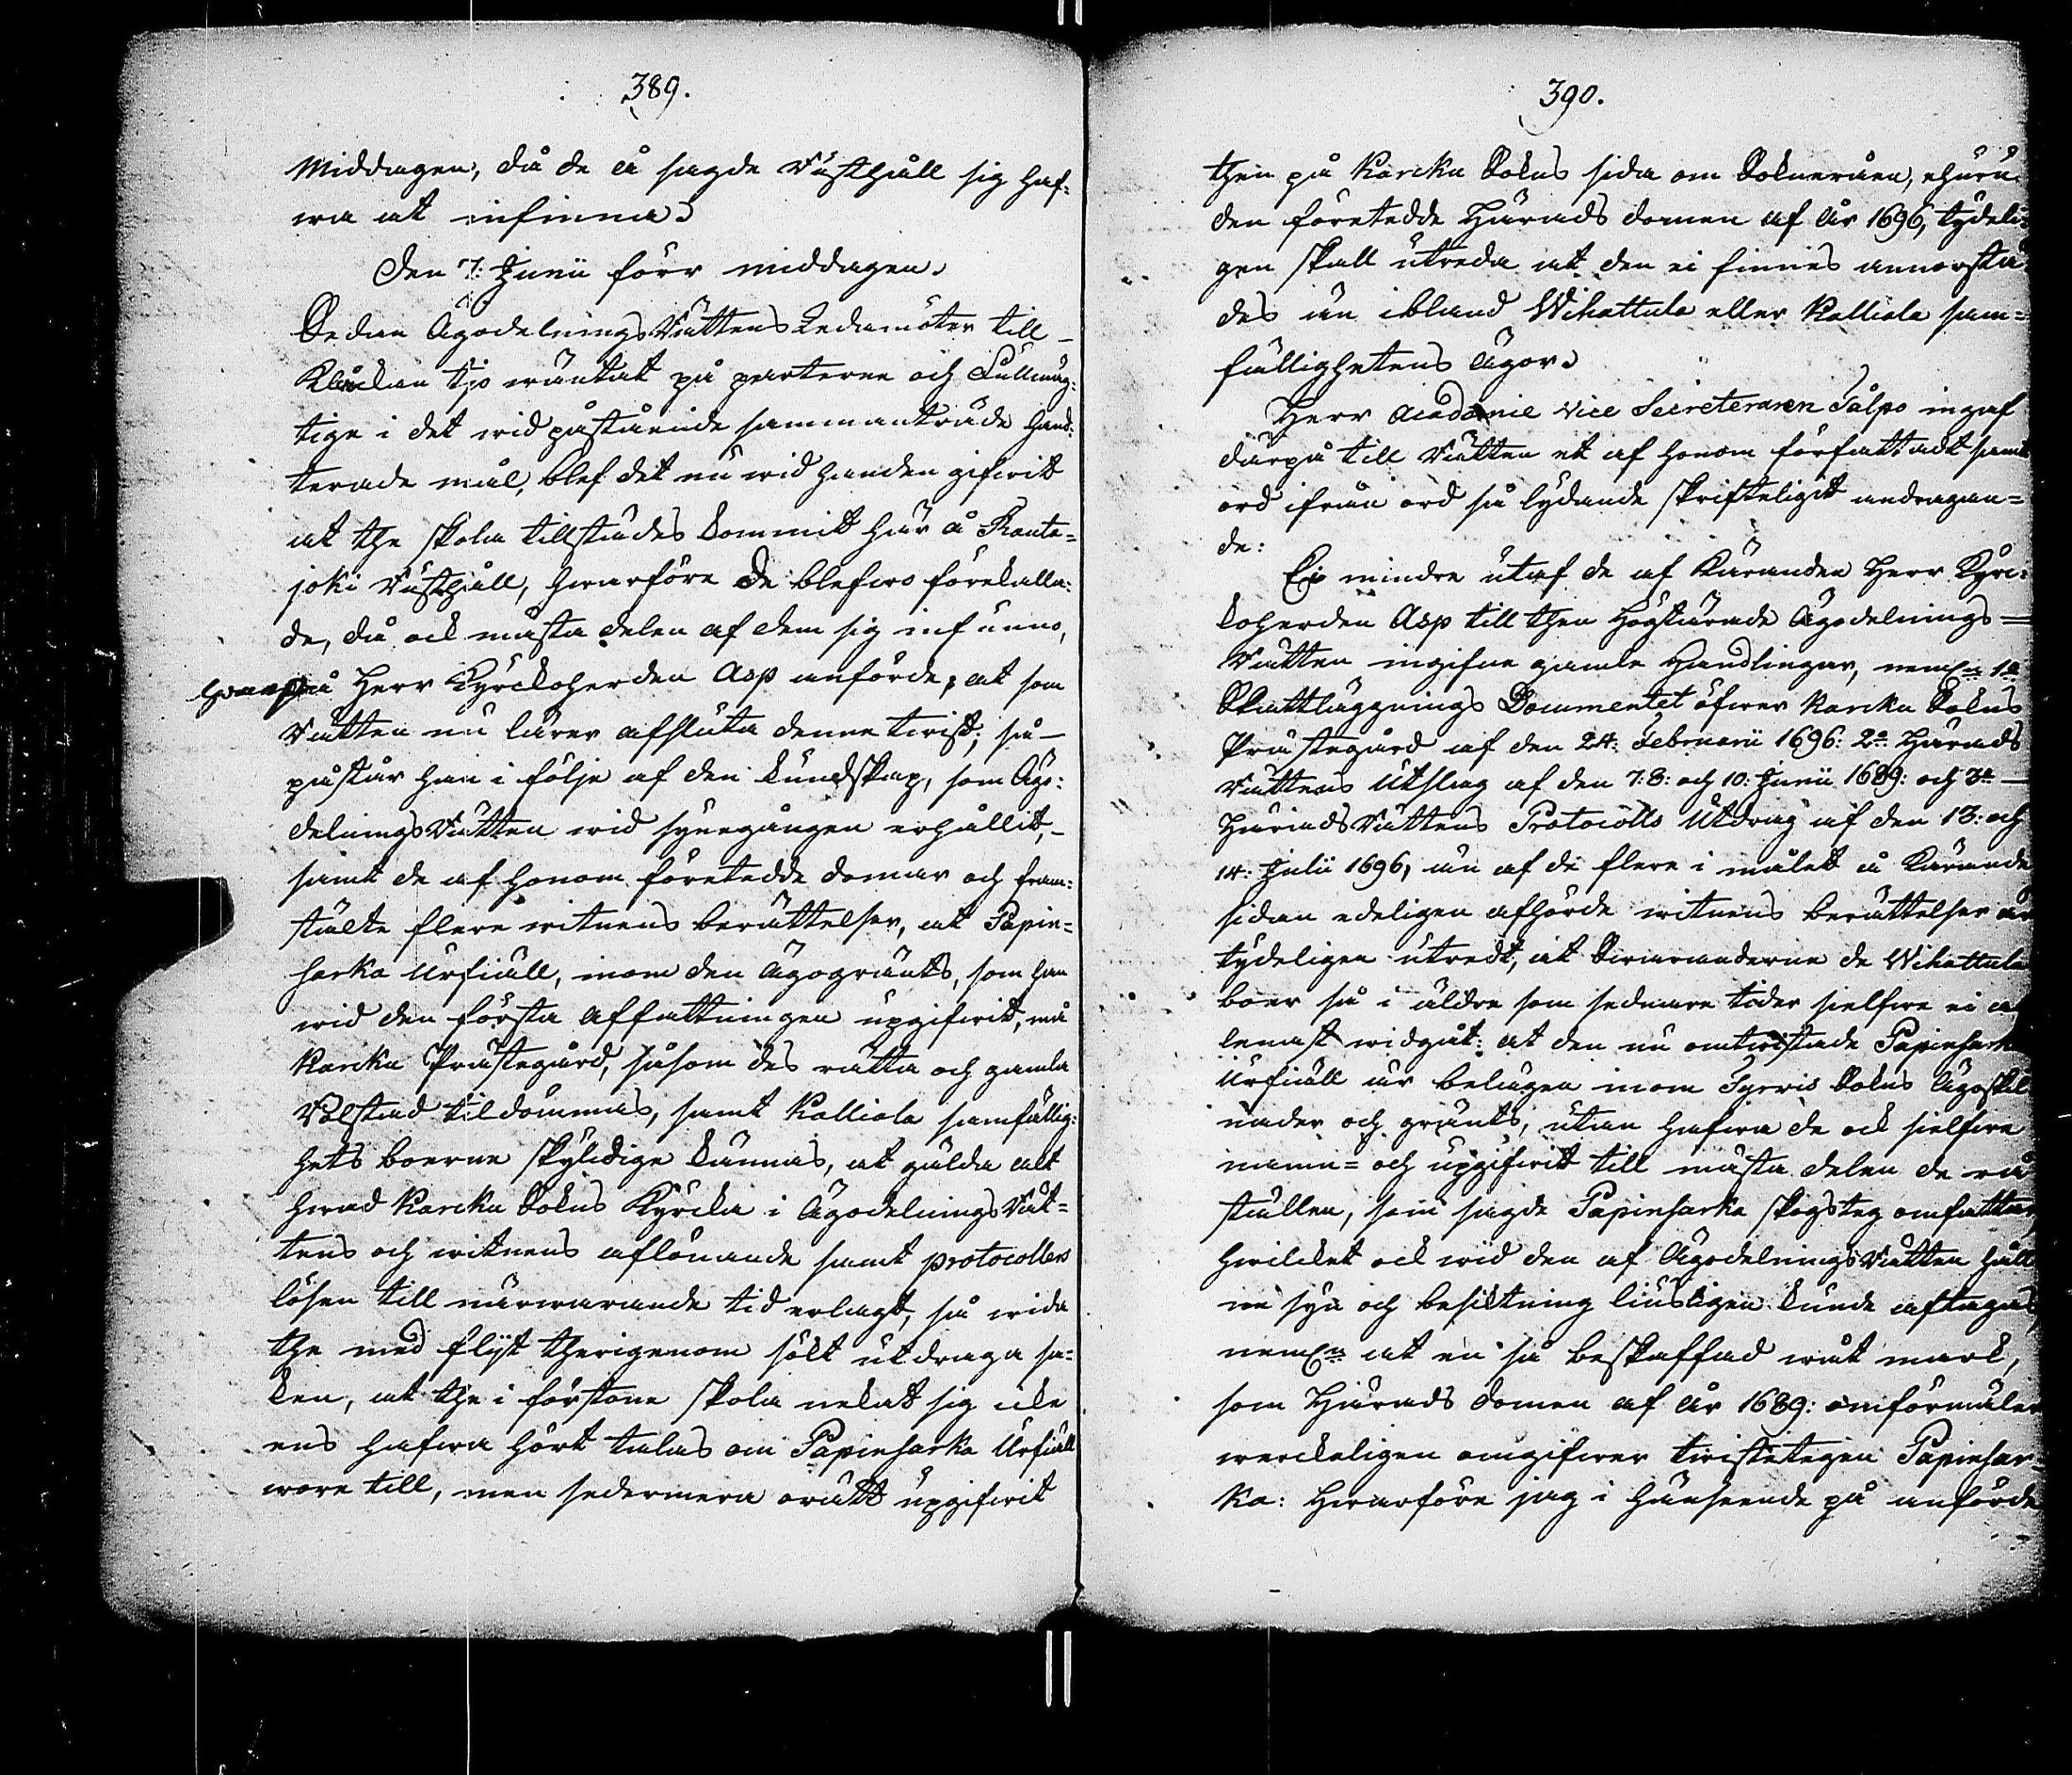 389.
Middagen, då de å sagde Rusthåll sig haf-
wa at infinna.
Den 7: Junii förr middagen.
Sedan ÄgodelningsRättens Ledamöter till
Klåckan tjo wäntat på parterne och Fullmäg-
tige i det wid påstående sammanträde hand-
terade mål, blef det nu wid handen gifwit
at the skola tillstädes kommit här å Ranta-
joki Rusthåll, hwarföre de blefwo förekalla-
de, då ock mästa delen af dem sig infunno,
hwarpå Herr Kyrckoherden Asp anförde, at som
Rätten nu lärer afsluta denne twist, så
påstår han i följe af den kundskap, som Ägo-
delningsRätten wid synegången erhållit,
samt de af honom företedde domar och fram-
stälte flere witnens berättelser, at Papin-
sarka Urfiäll, inom den Ägogränts, som han
wid den första affattningen upgifwit, må
Karcku Prästegård, såsom des rätta och gamla
Bolstad tildömmas, samt Kalliola samfällig-
hets boerne skyldige kännas, at gälda alt
hwad Karcku Sokns Kyrcka i ÄgodelningsRät-
tens och witnens aflönande samt protocollers
lösen till närwarande tid erlagt, så wida
the med flijt therigenom sökt utdraga sa-
ken, at the i förstone skola nekat sig icke
ens hafwa hört talas om Papinsarka Urfiäll
wore till, men sedermera orätt upgifwit
390.
then på Karcku Sokns sida om Sockneråen, ehuru
den företedde Härads domen af år 1696, tydeli-
gen skall utreda at den ei finnes annorstä-
des än ibland Wihattula eller Kalliola sam-
fällighetens ägor.
Herr Academie Vice Secreteraren Salpo ingaf
därpå till Rätten et af honom författadt samt
ord ifrån ord så lydande skrifteligit andragan-
de:
Ej mindre utaf de af Käranden Herr Kyrc-
koherden Asp till then Högtärade Ägodelnings-
Rätten ingifne gamle Handlingar, neml:n 1:o
Skattläggnings Documentet öfwer Karcku Sokns
Prästegård af den 24: Februarii 1696: 2:o Härads
Rättens Utslag af den 7: 8: och 10: Junii 1689: och 3:o
HäradsRättens Protocolls Utdrag af den 13: och
14: Julii 1696, än af de flere i målet å Kärande
sidan edeligen afhörde witnens berättelser är
tydeligen utredt, at Swaranderne de Wihattula
boer så i äldre som sednare tider sielfwe ei a
lenast widgåt: at den nu omtwistade Papinsarka
Urfiäll är belägen inom Tyrwis Sokns Ägoskil
nader och gränts, utan hafwa de ock sielfwe
namn- och upgifwit till mästa delen de rå
ställen, som sagde Papinsarka skogsteg omfattar,
hwilcket ock wid den af ÄgodelningsRätten håll
ne syn och besiktning liusligen kunde aftagas,
neml:n at en så beskaffad wåt mark,
som Härads domen af år 1689: omförmäler
werckeligen omgifwer twistetegen Papinsar-
ka: Hwarföre jag i hänseende på anförde